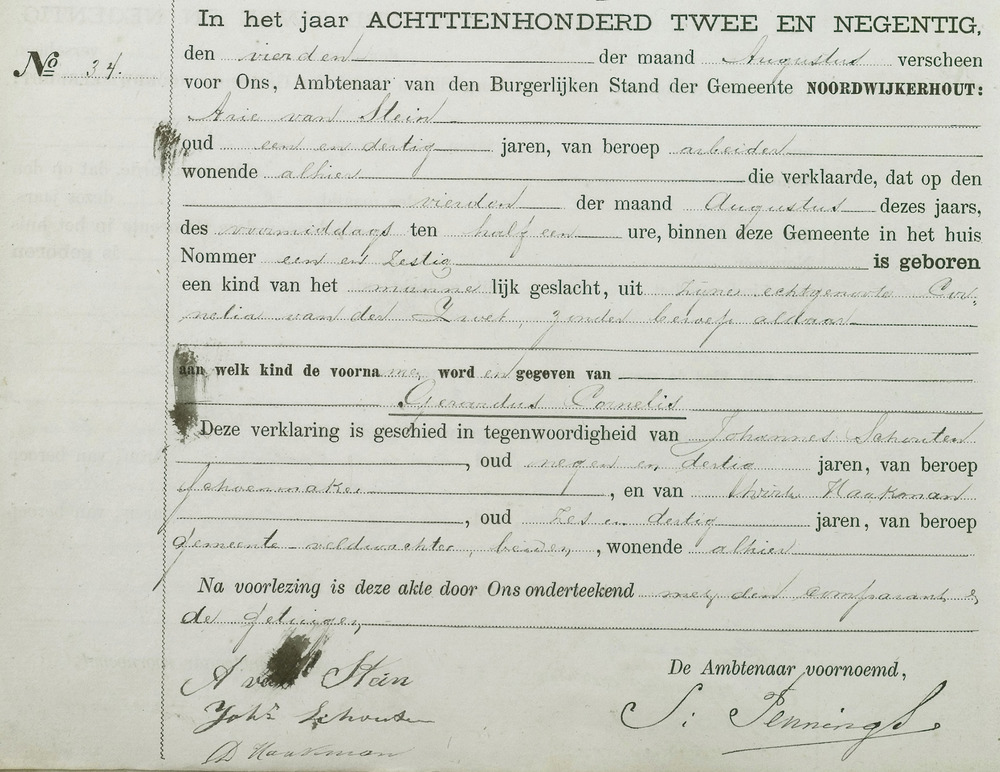 In het jaar ACHTTIENHONDERD TWEE EN NEGENTIG,
No 34.
den vierden der maand Augustus verscheen
voor Ons, Ambtenaar van den Burgerlijken Stand der Gemeente NOORDWIJKERHOUT:
Arie van Stein
oud een en dertig jaren, van beroep arbeider
wonende alhier die verklaarde, dat op den
vierden der maand Augustus dezes jaars,
des voormiddags ten half een ure, binnen deze Gemeente in het huis
Nommer een en Zestig is geboren
een kind van het mannelijk geslacht, uit zijne echtgenoote Cor-
nelia van der Zwet, zonder beroep aldaar
aan welk kind de voornamen worden gegeven van
Gerardus Cornelis
Deze verklaring is geschied in tegenwoordigheid van Johannes Schouten
, oud negen en dertig jaren, van beroep
Schoenmaker, en van Haakman
, oud Zes en dertig jaren, van beroep
gemeente-veldwachter, beiden, wonende alhier
Na voorlezing is deze akte door Ons onderteekend met den comparant &
de getuigen,
De Ambtenaar voornoemd,
A van Stein
Joh: Schouten
S: Pennings
D Haakman